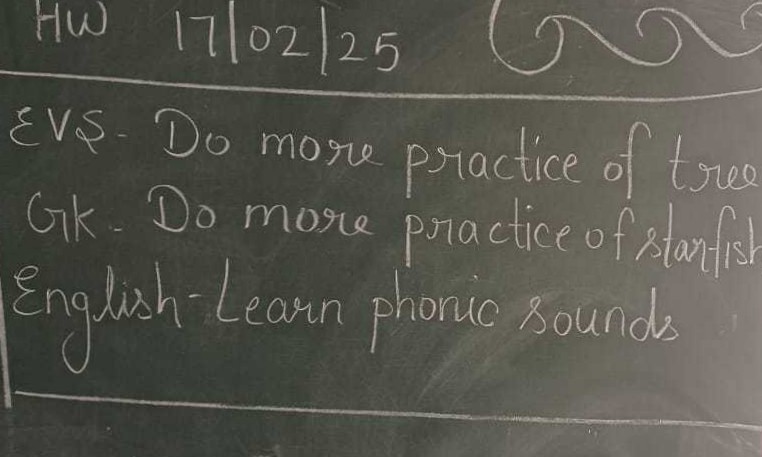 HW 17/02/25
EVS - Do more practice of tree
GK - Do more practice of starfish
English - Learn phonic sounds